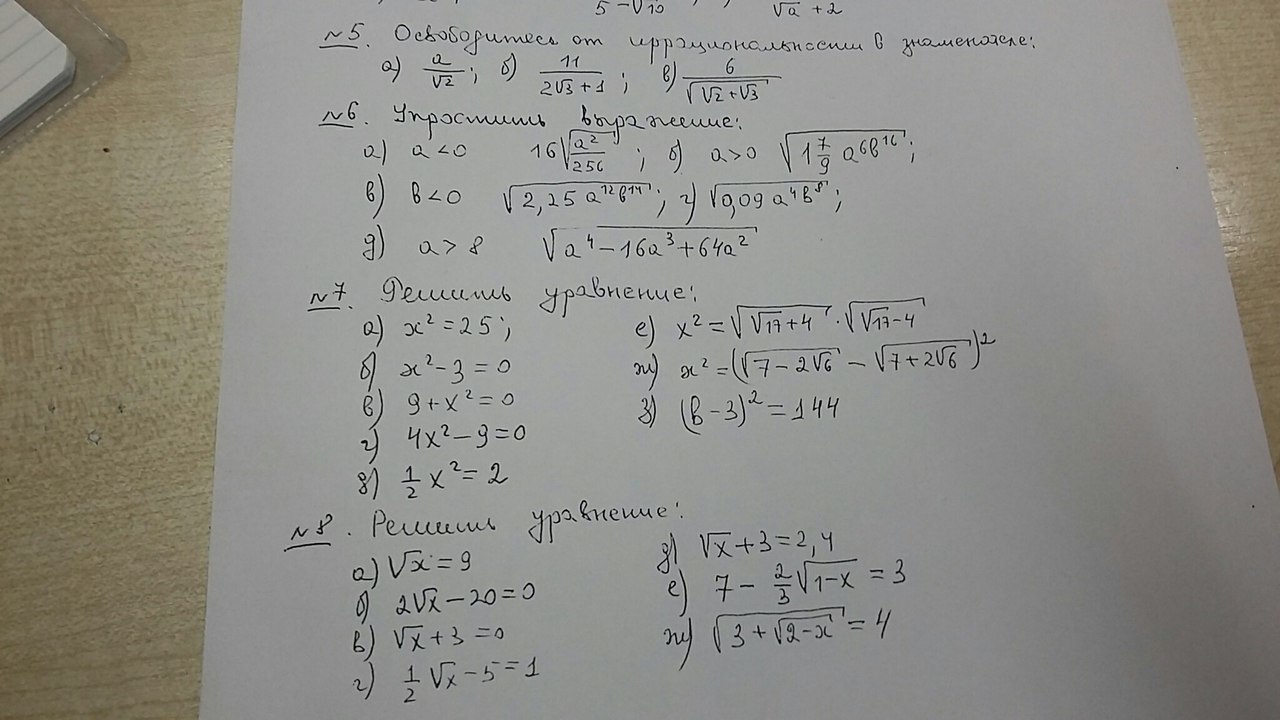 5-√10 √a+2
№5. Освободитесь от иррациональности в знаменателе:
а) a/√2; б) 11/(2√3+1); в) 6/√(√2+√3)
№6. Упростить выражение:
а) a<0 16√(a²/256); б) a>0 √(1 7/9 a⁶b¹⁶);
в) b<0 √(2,25a¹²b¹⁴); г) √(0,09a⁴b⁸);
д) a>8 √(a⁴-16a³+64a²)
№7. Решить уравнение:
а) x²=25;
б) x²-3=0
в) 9+x²=0
г) 4x²-9=0
д) 1/2 x²=2
е) x²=√(√17+4)·√(√17-4)
ж) x²=(√(7-2√6) - √(7+2√6))²
з) (b-3)²=144
№8. Решить уравнение:
а) √x=9
б) 2√x-20=0
в) √x+3=0
г) 1/2 √x-5=1
д) √x+3=2,4
е) 7- 2/3 √(1-x)=3
ж) √(3+√(2-x))=4